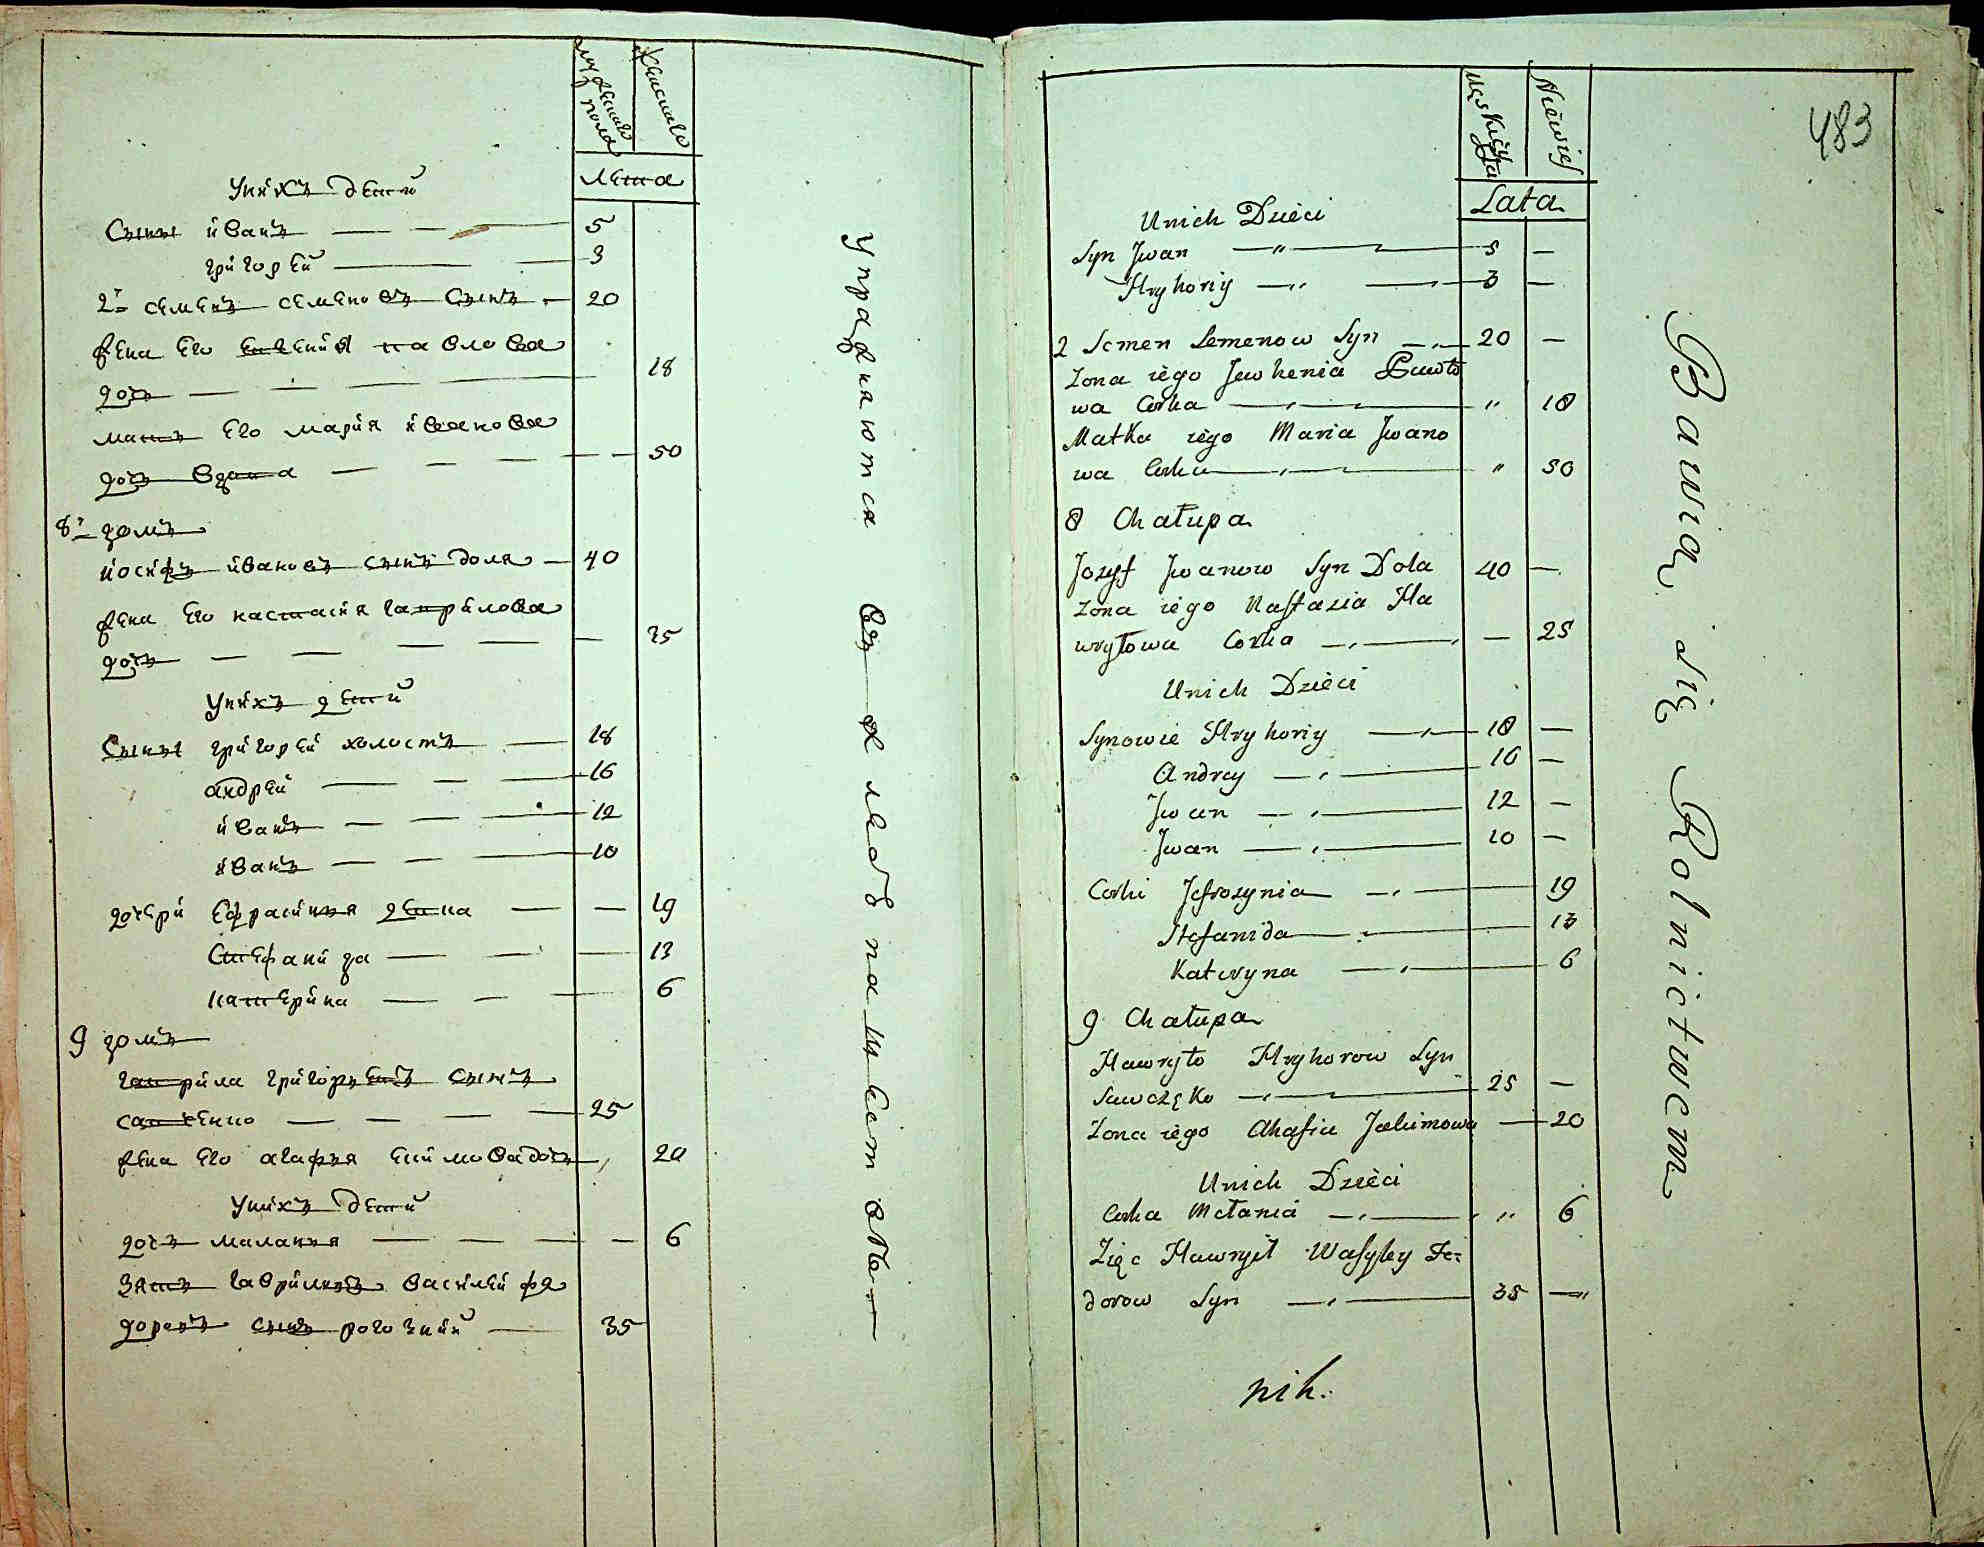 мужеска пола
женска
лета
У них детей
Сыны иван 5
григорей 3
2й семен семенов сын 20
жена его евгения павлова
дочь 18
мать его мария иванова
дочь вдова 50
8й дом
иосиф иванов сын доля 40
жена его настасия гаврилова
дочь 25
У них детей
Сыны григорей холост 18
андрей 16
иван 12
иван 10
дочери Ефросиния девка 19
Стефанида 13
катерина 6
9 дом
гаврила григорьев сын
савченко 25
жена его агафия Екимова дочь 20
У них детей
дочь малания 6
зять гаврилин василей фе
доров сын рогозний 35
Упражняются в хлебопашестве
483
Męskiey Płci
Niewiey
Lata
Unich Dzieci
Syn Jwan 5 —
Hryhoriy 3 —
2 Semen Semenow Syn 20 —
Zona iego Jewhenia Pawło
wa Corka " 18
Matka iego Maria Jwano
wa Corka " 50
8 Chałupa
Jozyf Jwanow Syn Dola 40 —
Zona iego Nastazia Ha
wryłowa Corka — 25
Unich Dzieci
Synowie Hryhoriy 18 —
Andrey 16 —
Jwan 12 —
Jwan 10 —
Corki Jefrozynia 19
Stefanida 13
Kateryna 6
9 Chałupa
Hawryło Hryhorow Syn
Sawczęko 25 —
Zona iego Ahafia Jakimowa 20
Unich Dzieci
Corka Mełania " 6
Zięc Hawryił Wasyley Fe:
dorow Syn 35 —
nik.
Bawią się Rolnictwem